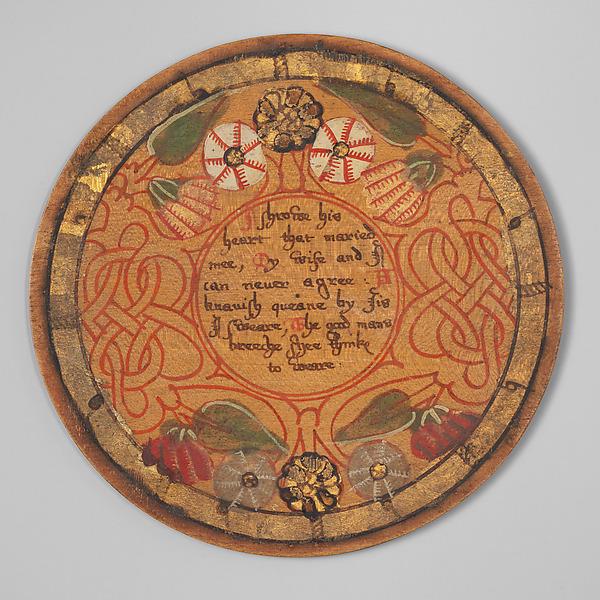 I shrowe his
heart that maried
mee, My wife and I
can never agree: A
knavish queane by Jis
I sweare, The good mans
breeche shee thinks
to weare.